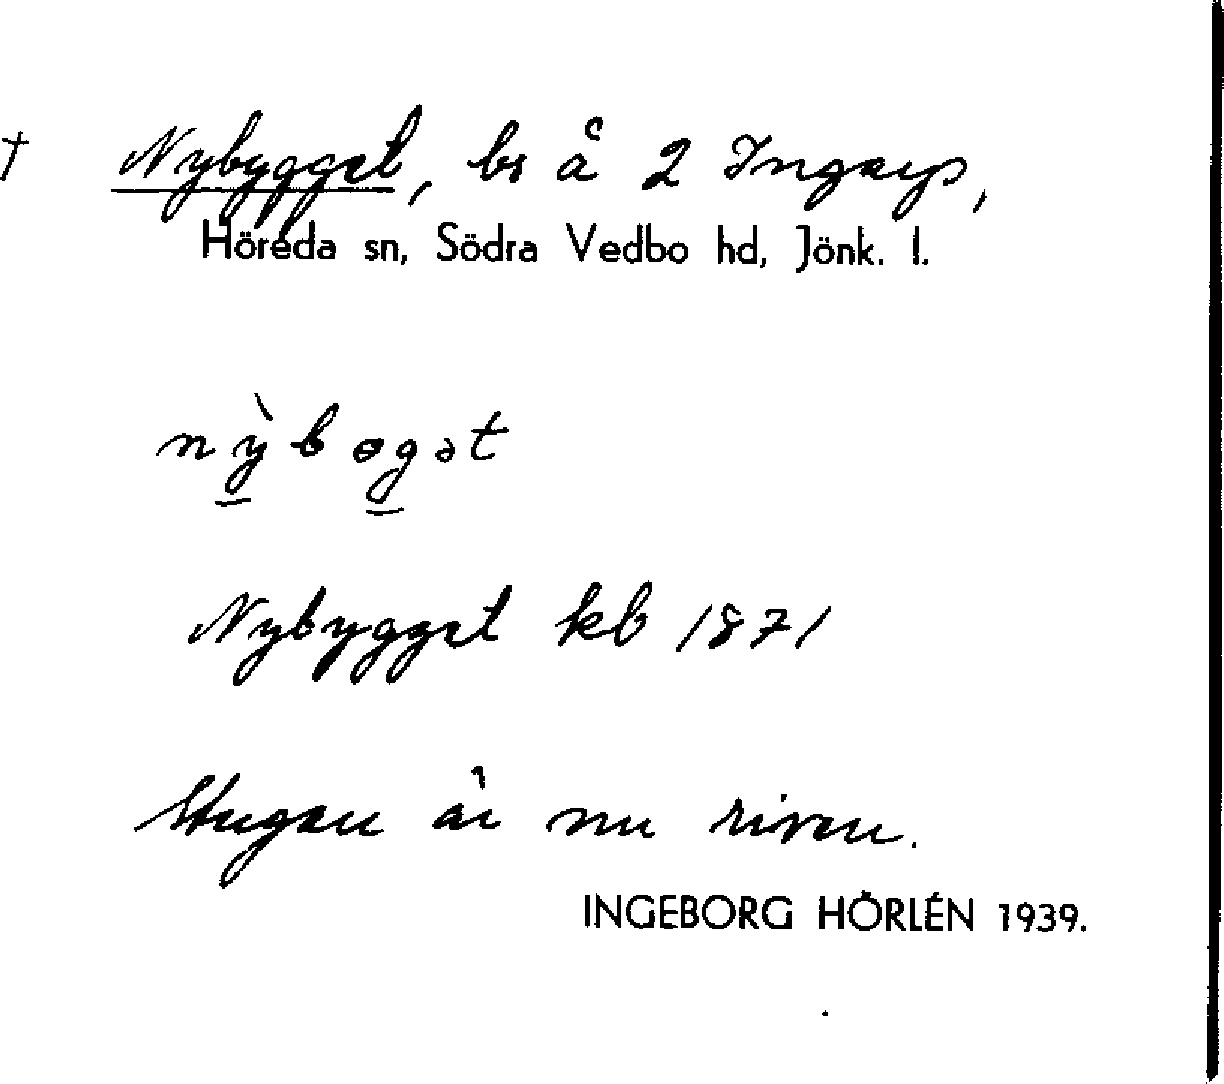 † Nybygget, bs å 2 Ingarp,
Höreda sn, Södra Vedbo hd, Jönk. l.
nỳbɵgət
Nybygget kb 1871
Stugan är nu riven.
INGEBORG HÖRLÉN 1939.